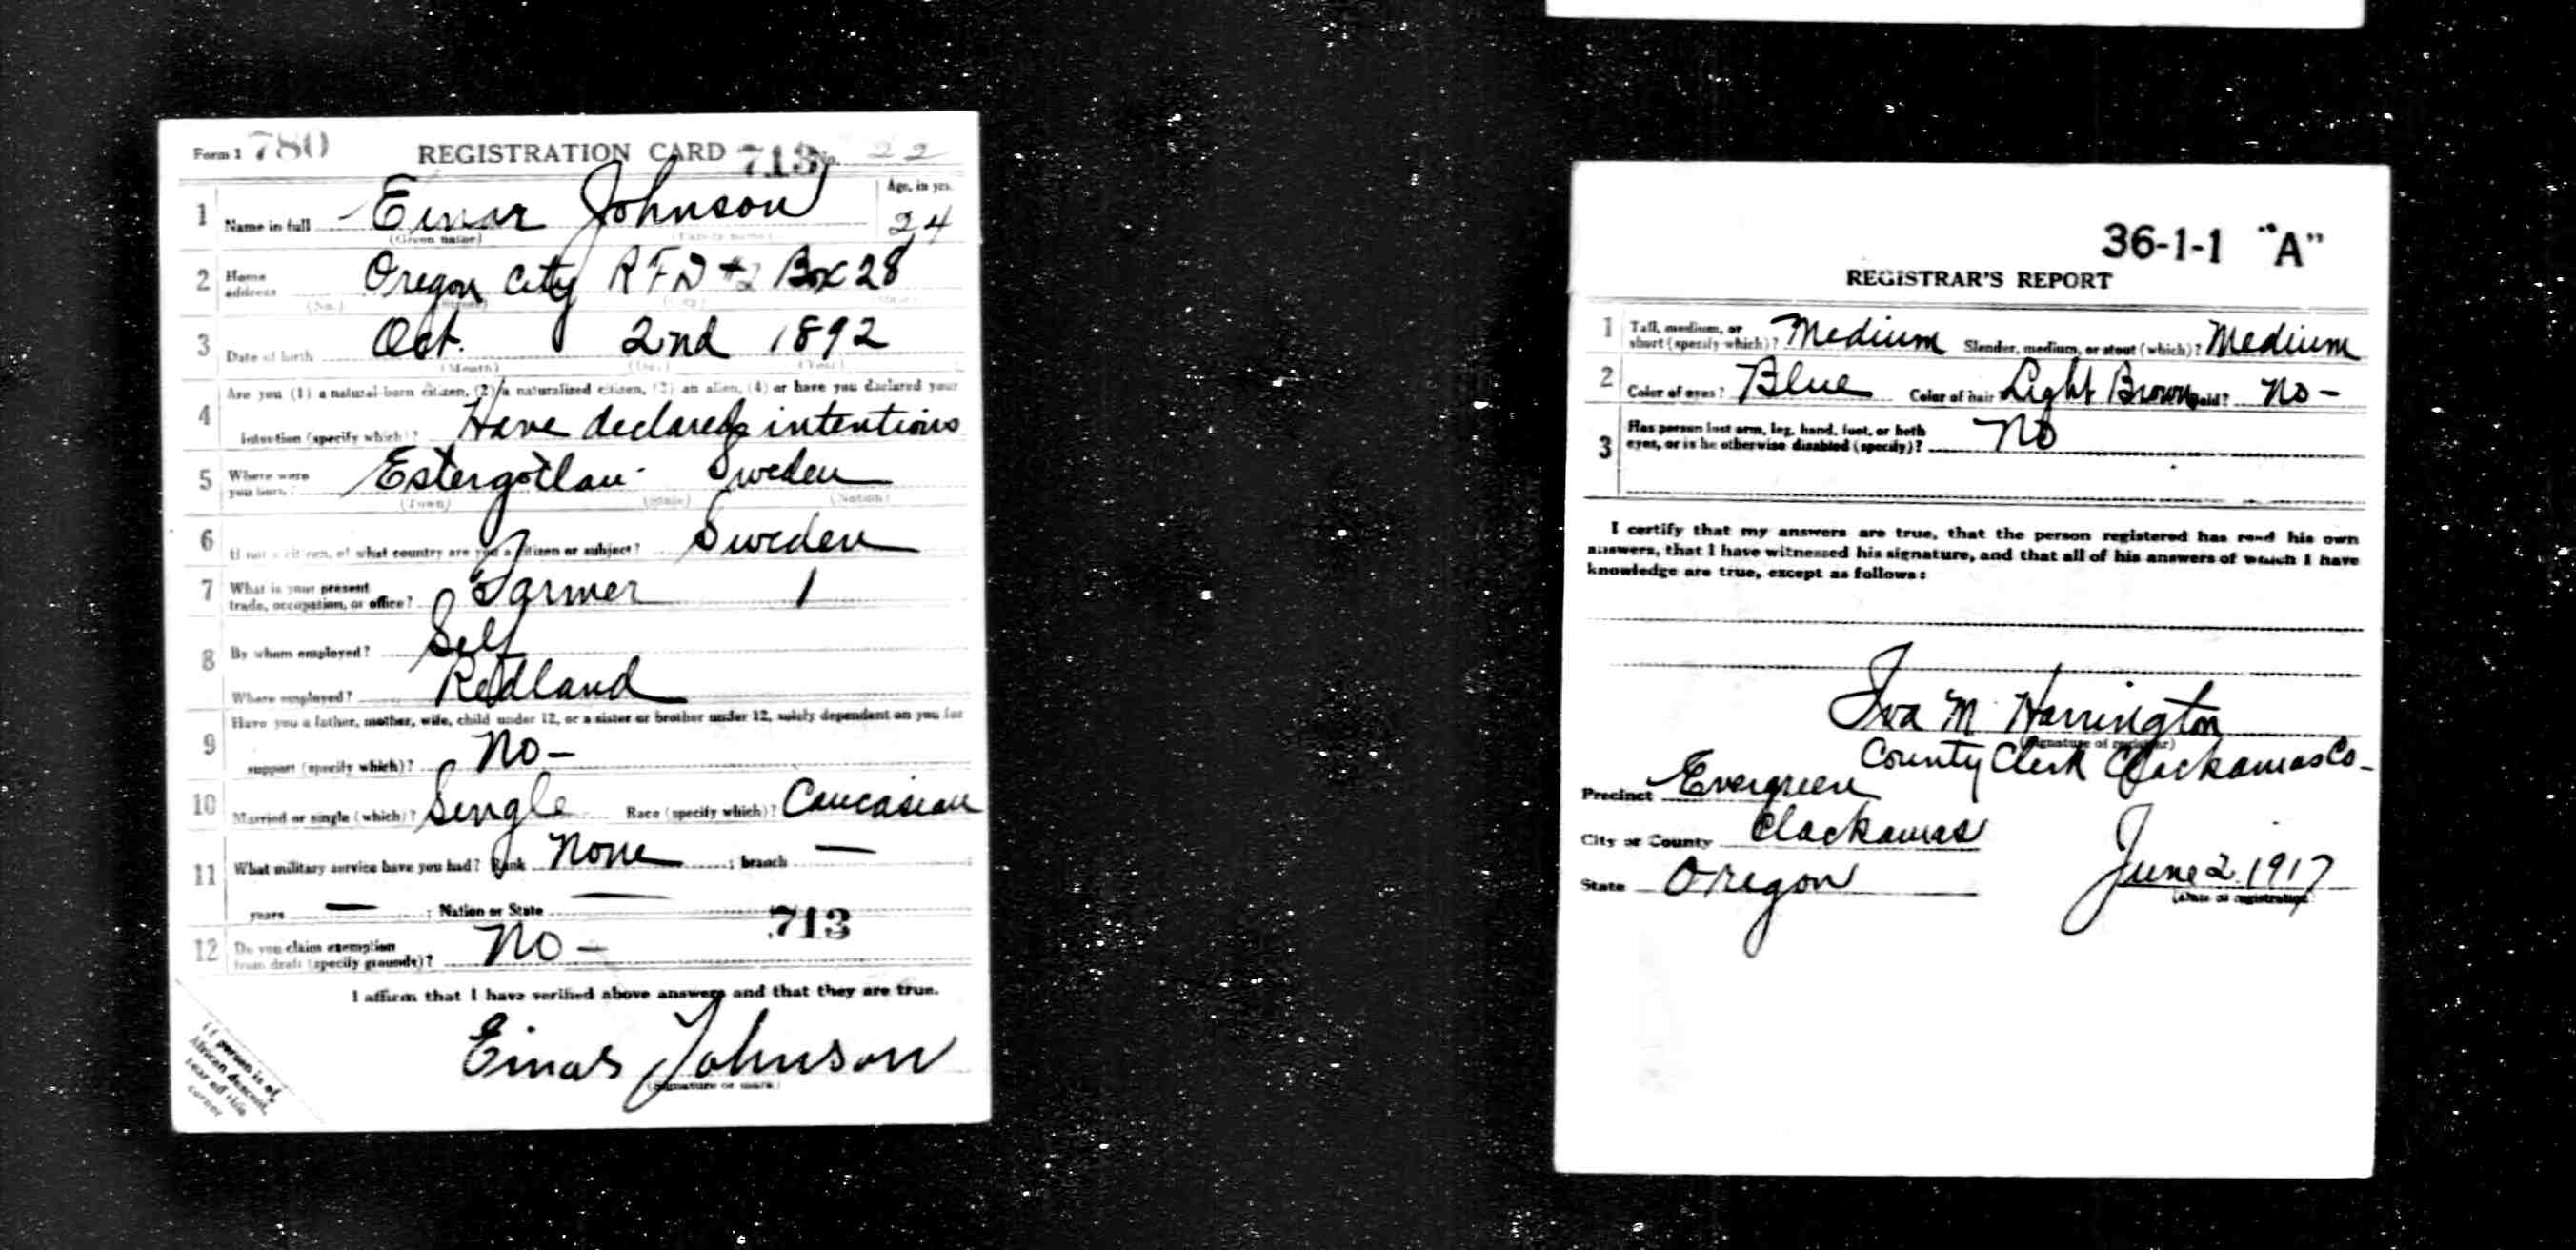 Form 1 780 REGISTRATION CARD 713 No. 22
1 Name in full Einar Johnson Age, in yrs. 24
(Given name) (Family name)
2 Home address Oregon City RFD #2 Box 28
(No.) (Street) (City) (State)
3 Date of birth Oct. 2nd 1892
(Month) (Day) (Year)
4 Are you (1) a natural-born citizen, (2) a naturalized citizen, (3) an alien, (4) or have you declared your
intention (specify which)? Have declared intentions
5 Where were you born? Estergötlau Sweden
(Town) (State) (Nation)
6 If not a citizen, of what country are you a citizen or subject? Sweden
7 What is your present
trade, occupation, or office? Farmer 1
8 By whom employed? Self
Where employed? Redland
9 Have you a father, mother, wife, child under 12, or a sister or brother under 12, solely dependent on you for
support (specify which)? No -
10 Married or single (which)? Single Race (specify which)? Caucasian
11 What military service have you had? Rank None ; branch —
years — ; Nation or State —
713
12 Do you claim exemption
from draft (specify grounds)? No -
I affirm that I have verified above answers and that they are true.
Einar Johnson
(Signature or mark)
If person is of
African descent,
tear off this
corner
36-1-1 "A"
REGISTRAR'S REPORT
1 Tall, medium, or
short (specify which)? Medium Slender, medium, or stout (which)? Medium
2 Color of eyes? Blue Color of hair Light Brown Bald? No -
3 Has person lost arm, leg, hand, foot, or both
eyes, or is he otherwise disabled (specify)? No
I certify that my answers are true, that the person registered has read his own
answers, that I have witnessed his signature, and that all of his answers of which I have
knowledge are true, except as follows:
Iva M. Harrington
(Signature of registrar)
County Clerk Clackamas Co-
Precinct Evergreen
City or County Clackamas
State Oregon June 2. 1917
(Date of registration)